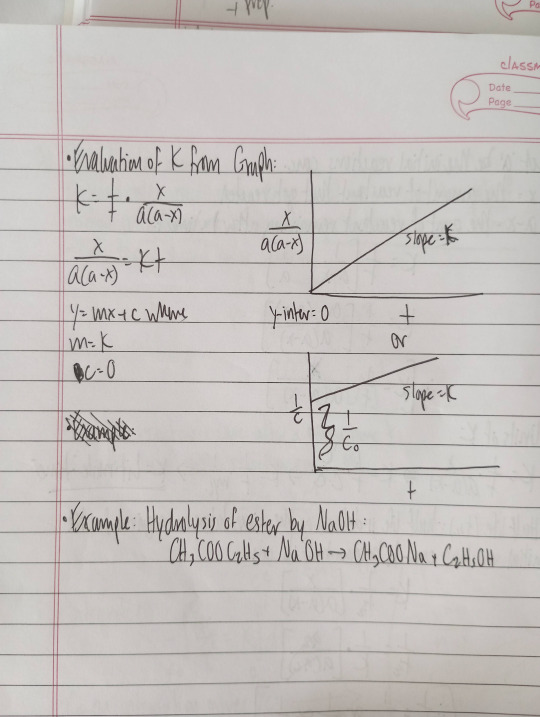 CLASSM
Date
Page
• Evaluation of K from Graph:
K = 1/t · x/a(a-x)
x/a(a-x) = Kt
y = mx + c where
m = K
c = 0
x/a(a-x)
slope = K
y-inter = 0
t
or
1/c
1/c₀
slope = K
t
• Example:
• Example: Hydrolysis of ester by NaOH:
CH₃COOC₂H₅ + NaOH → CH₃COONa + C₂H₅OH